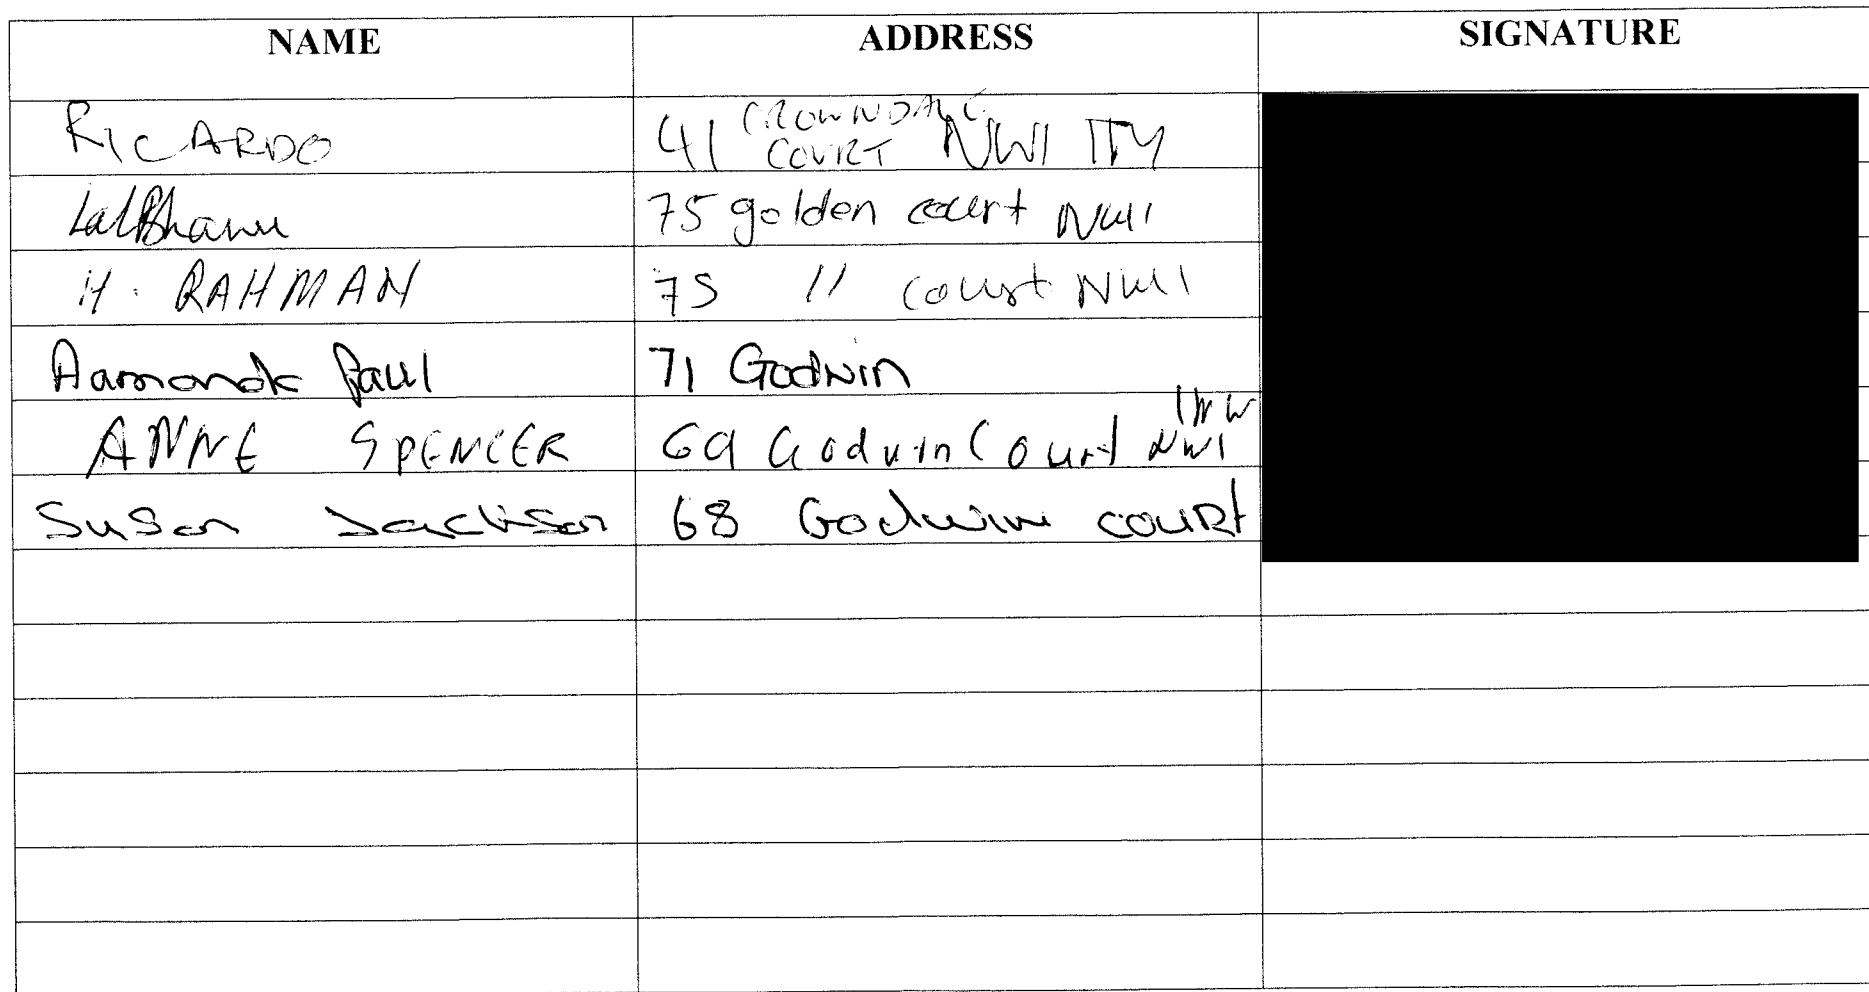 NAME ADDRESS SIGNATURE
RICARDO 41 CROWNDALE COURT NW1 1TY
75 golden court NW1
H. RAHMAN 75 11 court NW1
Paul 71 Godwin
ANNE SPENCER 69 Godwin Court NW1 1NW
Susan Jackson 68 Godwin COURT